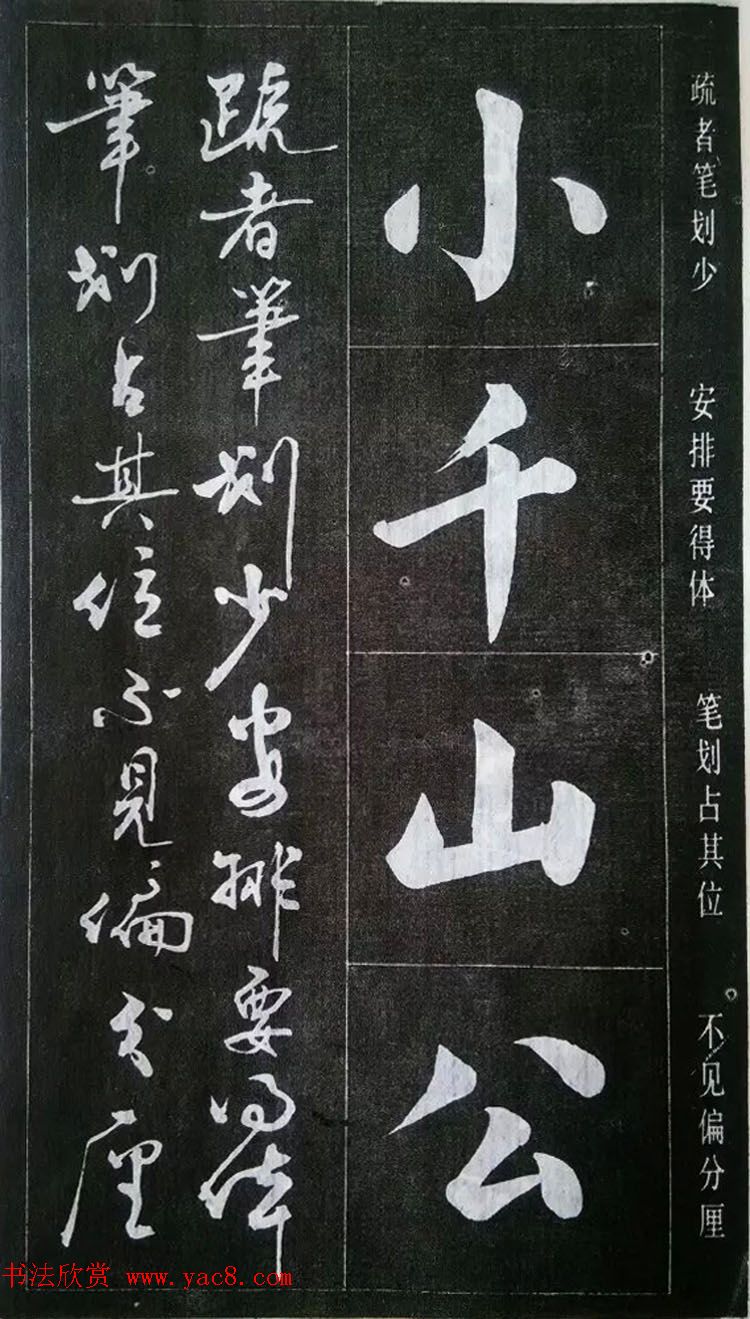 疏者笔划少 安排要得体 笔划占其位 不见偏分厘
小千山公
疏者筆划少安排要得体
筆划占其位不见偏分厘
书法欣赏 www.yac8.com